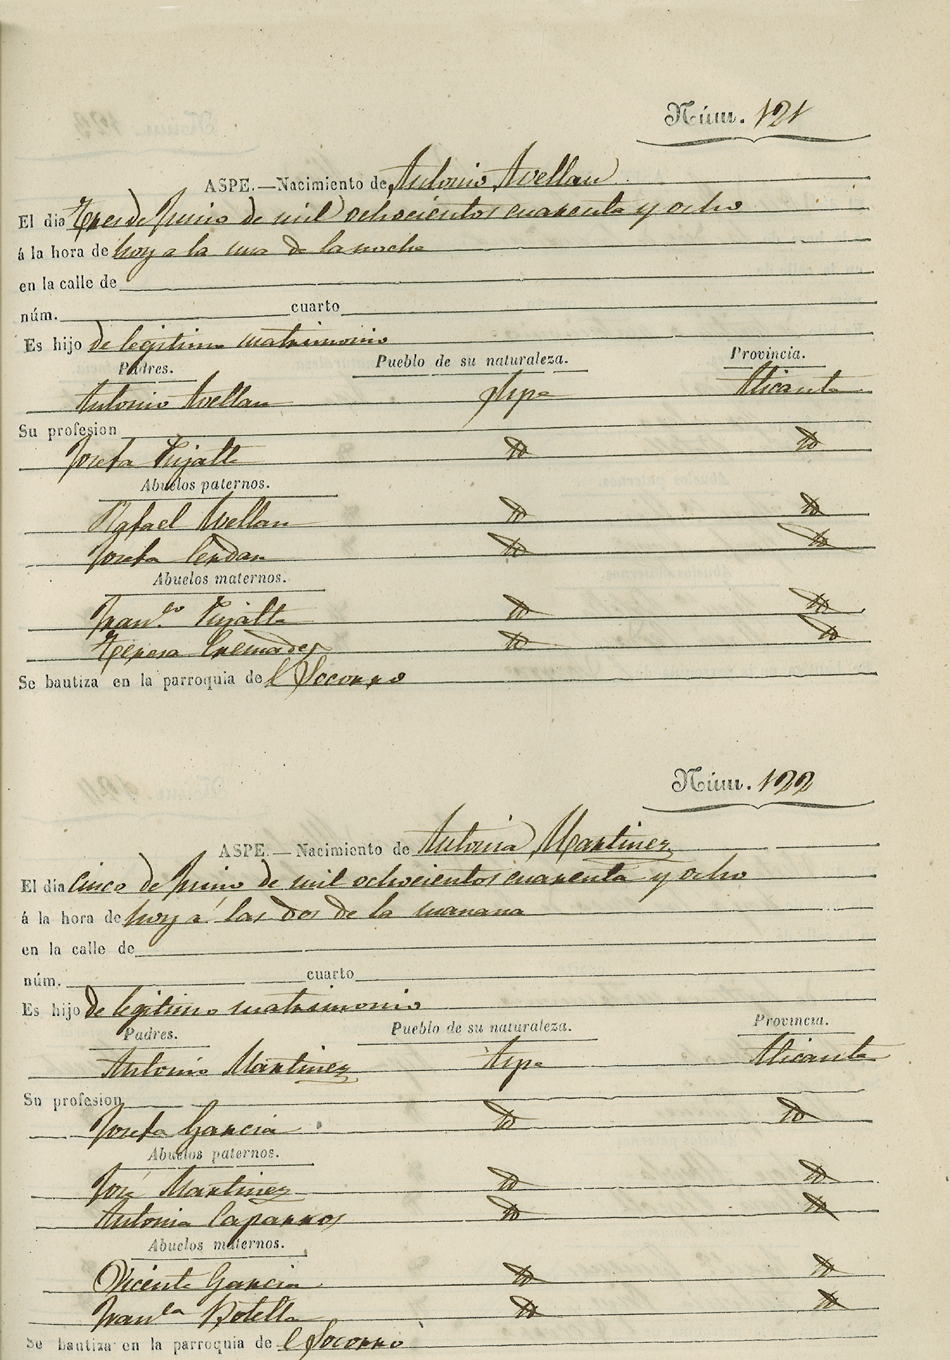 Núm. 121
ASPE.—Nacimiento de Antonio Avellan
El dia Tres de Junio de mil ochocientos cuarenta y ocho
á la hora de hoy a la una de la noche
en la calle de
núm. cuarto
Es hijo de legitimo matrimonio
Padres. Pueblo de su naturaleza. Provincia.
Antonio Avellan Aspe Alicante
Su profesion
Josefa Pujalte Yd Yd
Abuelos paternos.
Rafael Avellan Yd Yd
Josefa Cerdan Yd Yd
Abuelos maternos.
Fran.co Pujalte Yd Yd
Teresa Cremades Yd Yd
Se bautiza en la parroquia de el Socorro
Núm. 122
ASPE.—Nacimiento de Antonia Martinez
El dia cinco de Junio de mil ochocientos cuarenta y ocho
á la hora de hoy á las dos de la manana
en la calle de
núm. cuarto
Es hijo de legitimo matrimonio
Padres. Pueblo de su naturaleza. Provincia.
Antonio Martinez Aspe Alicante
Su profesion
Josefa Garcia Yd Yd
Abuelos paternos.
José Martinez Yd Yd
Antonia Caparros Yd Yd
Abuelos maternos.
Vicente Garcia Yd Yd
Fran.ca Botella Yd Yd
Se bautiza en la parroquia de el Socorro